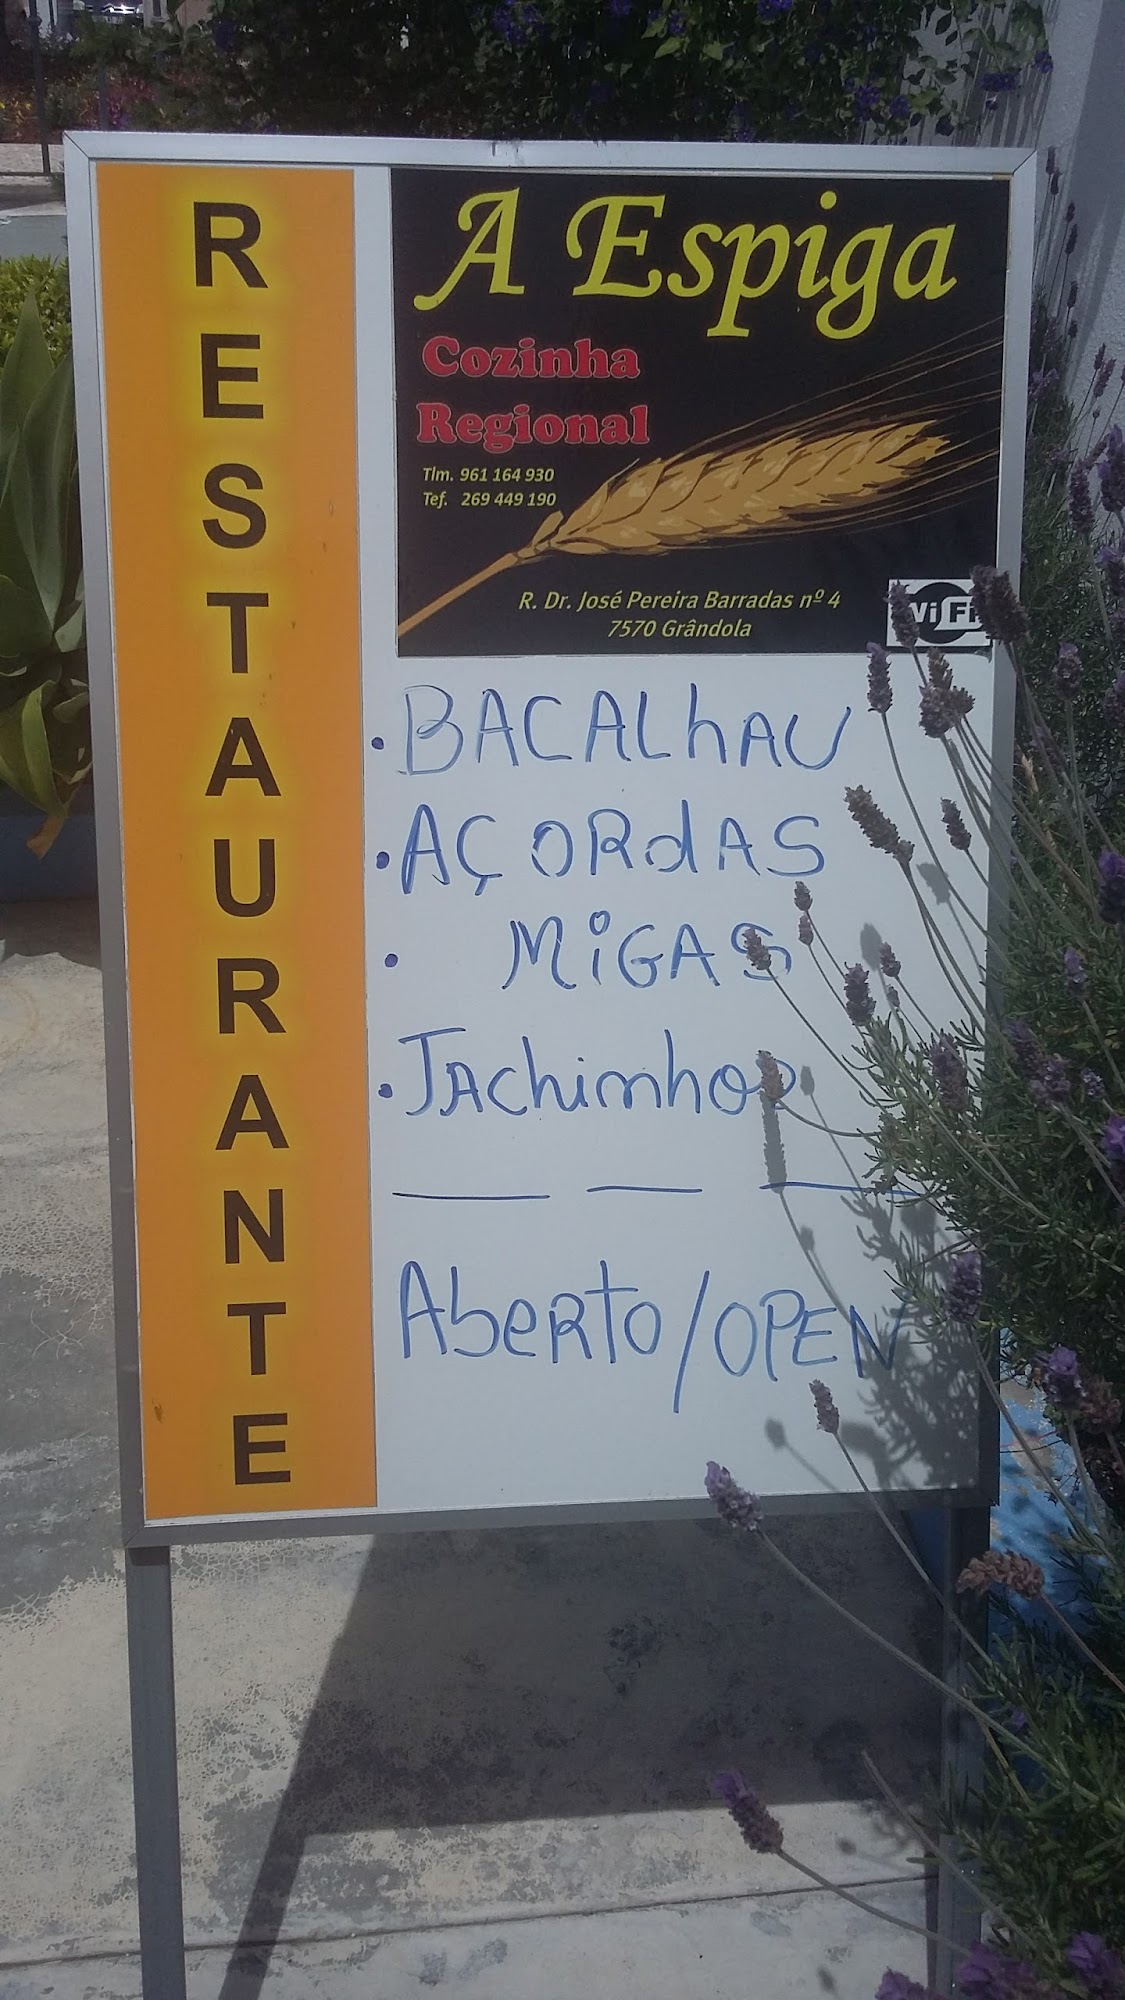 RESTAURANTE
A Espiga
Cozinha
Regional
Tlm. 961 164 930
Tef. 269 449 190
R. Dr. José Pereira Barradas nº 4
7570 Grândola
Wi Fi
• BACALhAU
• AÇORdAS
• MiGAS
• TAchinhos
Aberto/OPEN